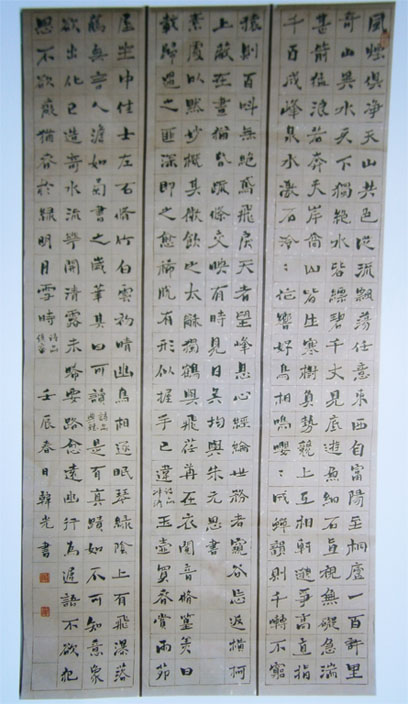 風煙俱淨天山共色從流飄蕩任意東西自富陽至桐廬一百許里
奇山異水天下獨絕水皆縹碧千丈見底遊魚細石直視無礙急湍
甚箭猛浪若奔夾岸高山皆生寒樹負勢競上互相軒邈爭高直指
千百成峰泉水激石泠:作響好鳥相鳴嚶:成蟬韻則千轉不窮
猿則百叫無絕鳶飛戾天者望峰息心經綸世務者窺谷忘返橫柯
上蔽在晝猶昏疏條交映有時見日吳均與朱元思書
素處以默妙機其微飲之太龢獨鶴與飛荏苒在衣閱音修篁美曰
載歸遇之匪深即之愈稀脫有形似握手已違詩品沖淡玉壺買春賞雨茆
屋坐中佳士左右修竹白雲初晴幽鳥相逐眠琴綠陰上有飛瀑落
花無言人澹如菊書之歲華其曰可讀詩品典雅是有真蹟如不可知意象
欲出化已造奇水流花開清露未晞要路愈遠幽行為遲語不欲犯
思不欲癡猶春於綠明月雪時詩品縝密壬辰春日韓光書